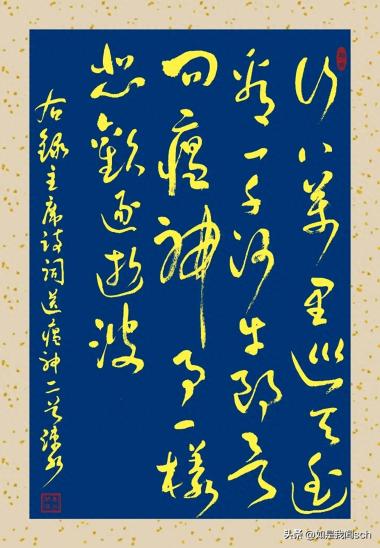 行八萬里巡天遥
看一千河牛郎欲
问瘟神事一樣
悲歡逐逝波
右録主席诗词送瘟神二首
头条 @如是我闻sch